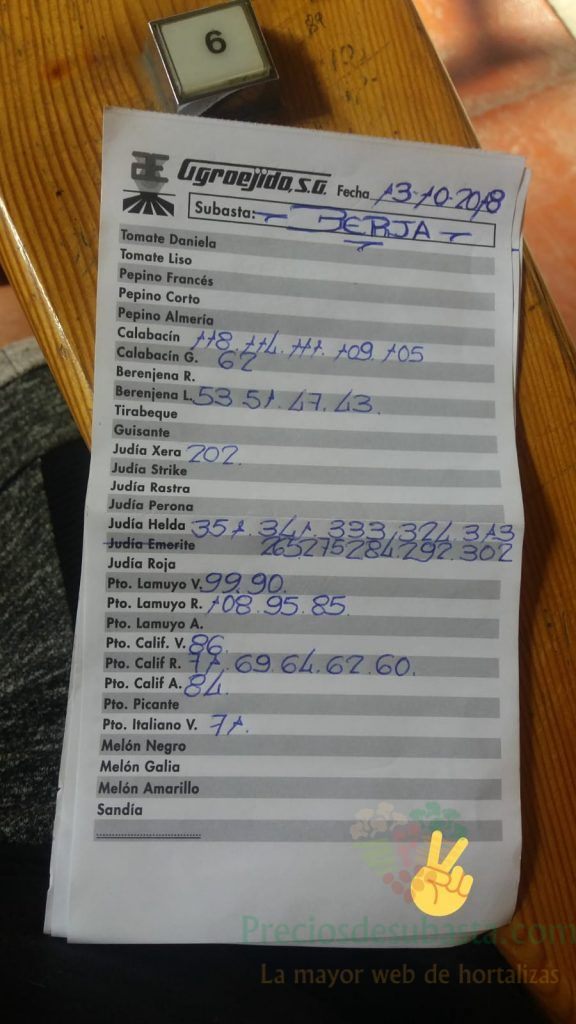 6
Agroejido, S.A. Fecha 13-10-2018
Subasta: BERJA
Tomate Daniela
Tomate Liso
Pepino Francés
Pepino Corto
Pepino Almería
Calabacín 118. 114. 111. 109. 105
Calabacín G. 62
Berenjena R.
Berenjena L. 53 51. 47. 43.
Tirabeque
Guisante
Judía Xera 202.
Judía Strike
Judía Rastra
Judía Perona
Judía Helda 351. 341. 333, 324. 313
Judía Emerite 265 275 284. 292. 302
Judía Roja
Pto. Lamuyo V. 99. 90.
Pto. Lamuyo R. 108. 95. 85.
Pto. Lamuyo A.
Pto. Calif. V. 86.
Pto. Calif R. 71. 69. 64. 62. 60.
Pto. Calif A. 84.
Pto. Picante
Pto. Italiano V. 71.
Melón Negro
Melón Galia
Melón Amarillo
Sandía
Preciosdesubasta.com
La mayor web de hortalizas